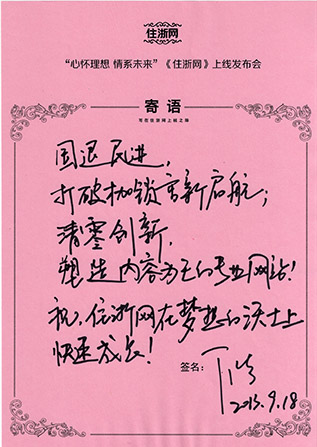 住浙网
“心怀理想 情系未来”《住浙网》上线发布会
寄语
写在住浙网上线之际
国退民进，
打破枷锁言新启航；
清零创新，
塑造内容为王的专业网站！
祝，住浙网在梦想的沃土上
快速成长！
签名：
2013.9.18